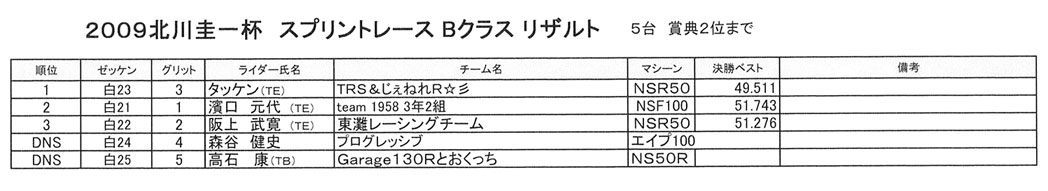 2009北川圭一杯 スプリントレース Bクラス リザルト 5台 賞典2位まで
順位 ゼッケン グリット ライダー氏名 チーム名 マシーン 決勝ベスト 備考
1 白23 3 タッケン(TE) TRS&じぇねれR☆彡 NSR50 49.511
2 白21 1 濱口 元代 (TE) team 1958 3年2組 NSF100 51.743
3 白22 2 阪上 武寛 (TE) 東灘レーシングチーム NSR50 51.276
DNS 白24 4 森谷 健史 プログレッシブ エイプ100
DNS 白25 5 高石 康(TB) Garage130Rとおくっち NS50R